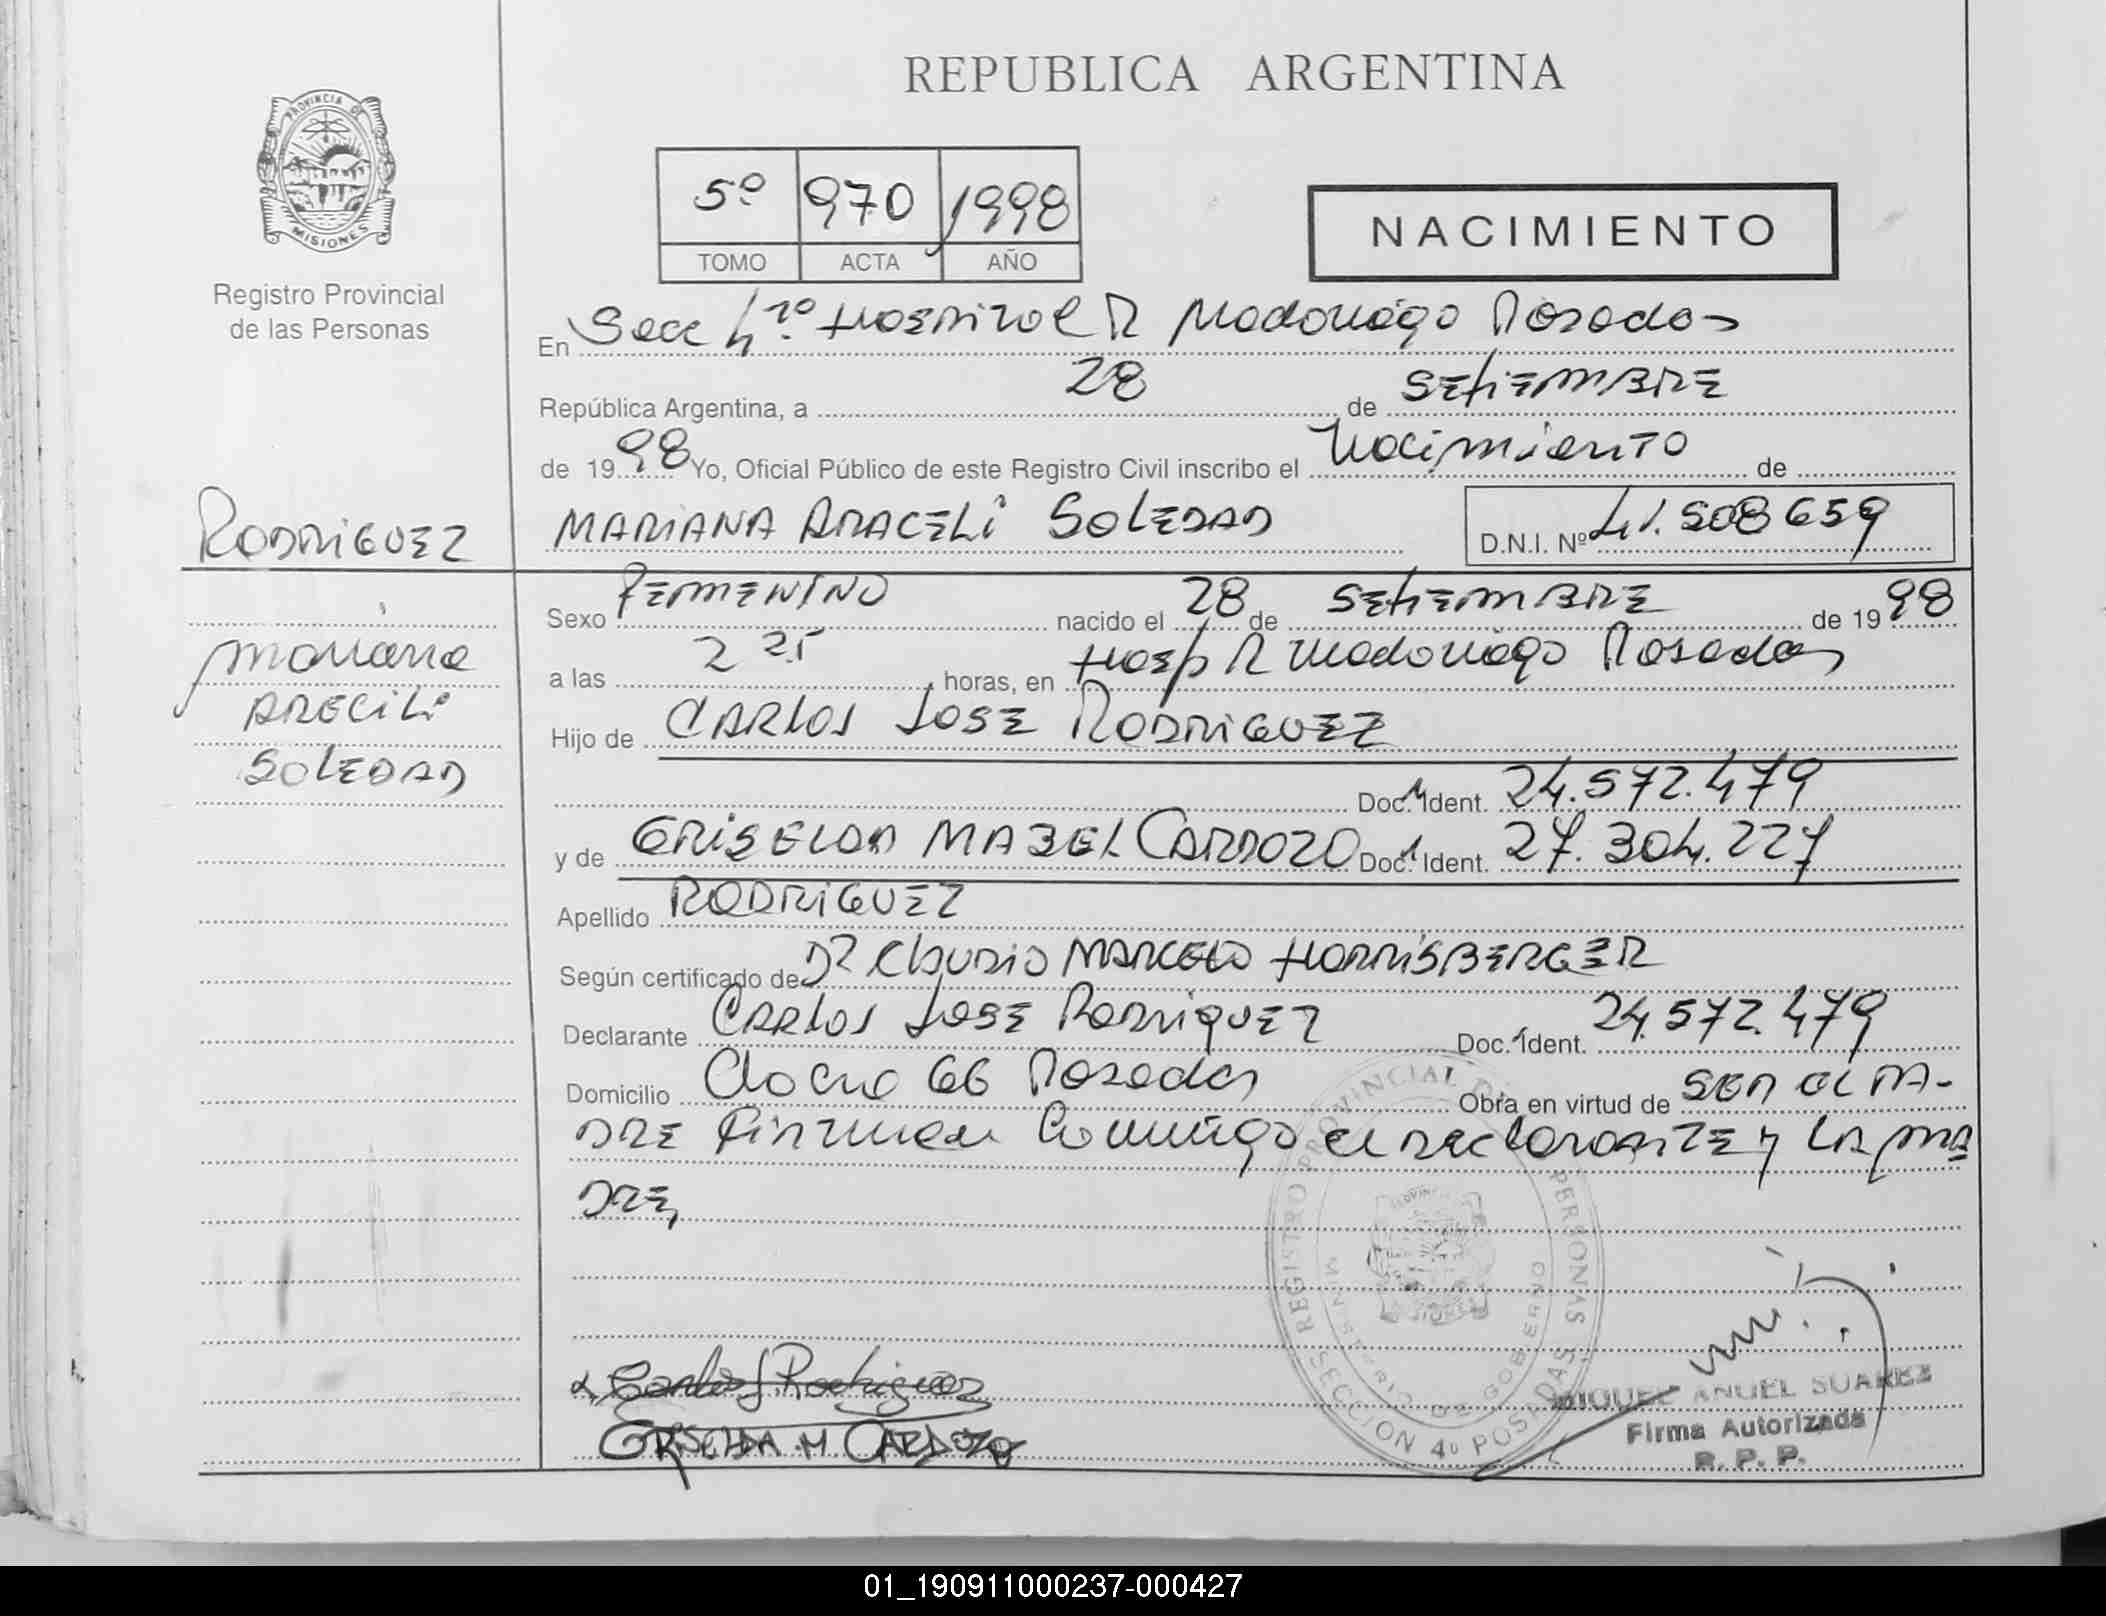 REPUBLICA ARGENTINA
PROVINCIA DE MISIONES
Registro Provincial
de las Personas
5º 970 1998
TOMO ACTA AÑO
NACIMIENTO
En Secc 4ta Hospital R Madariaga Posadas
República Argentina, a 28 de SETIEMBRE
de 1998 Yo, Oficial Público de este Registro Civil inscribo el Nacimiento de
RODRIGUEZ MARIANA ARACELI SOLEDAD D.N.I. Nº 41.508659
Mariana
ARECILI
SOLEDAD
Sexo FEMENINO nacido el 28 de SETIEMBRE de 1998
a las 2 25 horas, en Hosp R Madariaga Posadas
Hijo de CARLOS JOSE RODRIGUEZ
Doc. Ident. 24.572.479
y de GRISELDA MABEL CARDOZO Doc. Ident. 27.304.227
Apellido RODRIGUEZ
Según certificado de Dr CLAUDIO MARCELO HORRISBERGER
Declarante CARLOS JOSE RODRIGUEZ Doc. Ident. 24.572.479
Domicilio 66 Posadas Obra en virtud de SER EL PA-
DRE Firman Conmigo el declarante y LA MA
DRE,
REGISTRO PROVINCIAL DE PERSONAS
MINISTERIO DE GOBIERNO
SECCION 4º POSADAS
Carlos J. Rodriguez
GRISELDA M CARDOZO
MIGUEL ANGEL SUAREZ
Firma Autorizada
R. P. P.
01_190911000237-000427